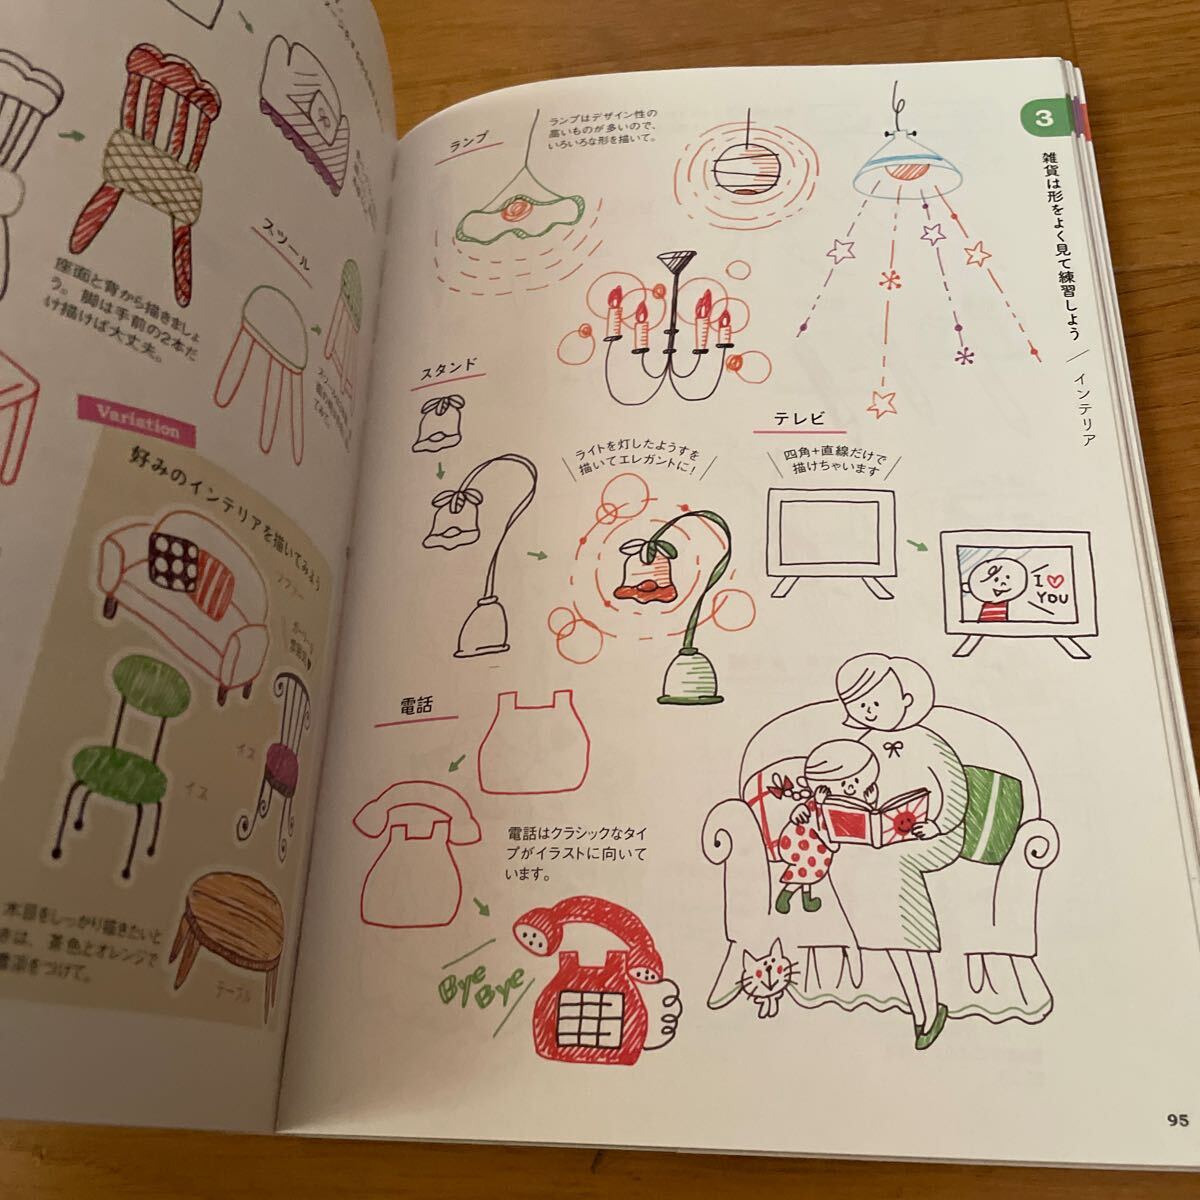 座面と背から描きましょ
う。脚は手前の2本だ
け描けば大丈夫。
スツール
Variation
好みのインテリアを描いてみよう
ソファー
イス
イス
木目をしっかり描きたいと
きは、茶色とオレンジで
テーブル
ランプ
ランプはデザイン性の
高いものが多いので、
いろいろな形を描いて。
スタンド
ライトを灯したようすを
描いてエレガントに!
テレビ
四角+直線だけで
描けちゃいます
I ♡
YOU
電話
電話はクラシックなタイ
プがイラストに向いて
います。
Bye
Bye
3
雑貨は形をよく見て練習しよう/インテリア
95